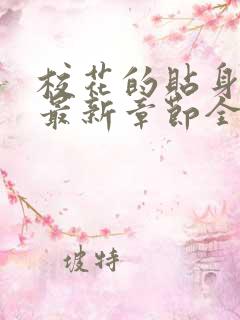 校花的贴身
最新章节全
坡特